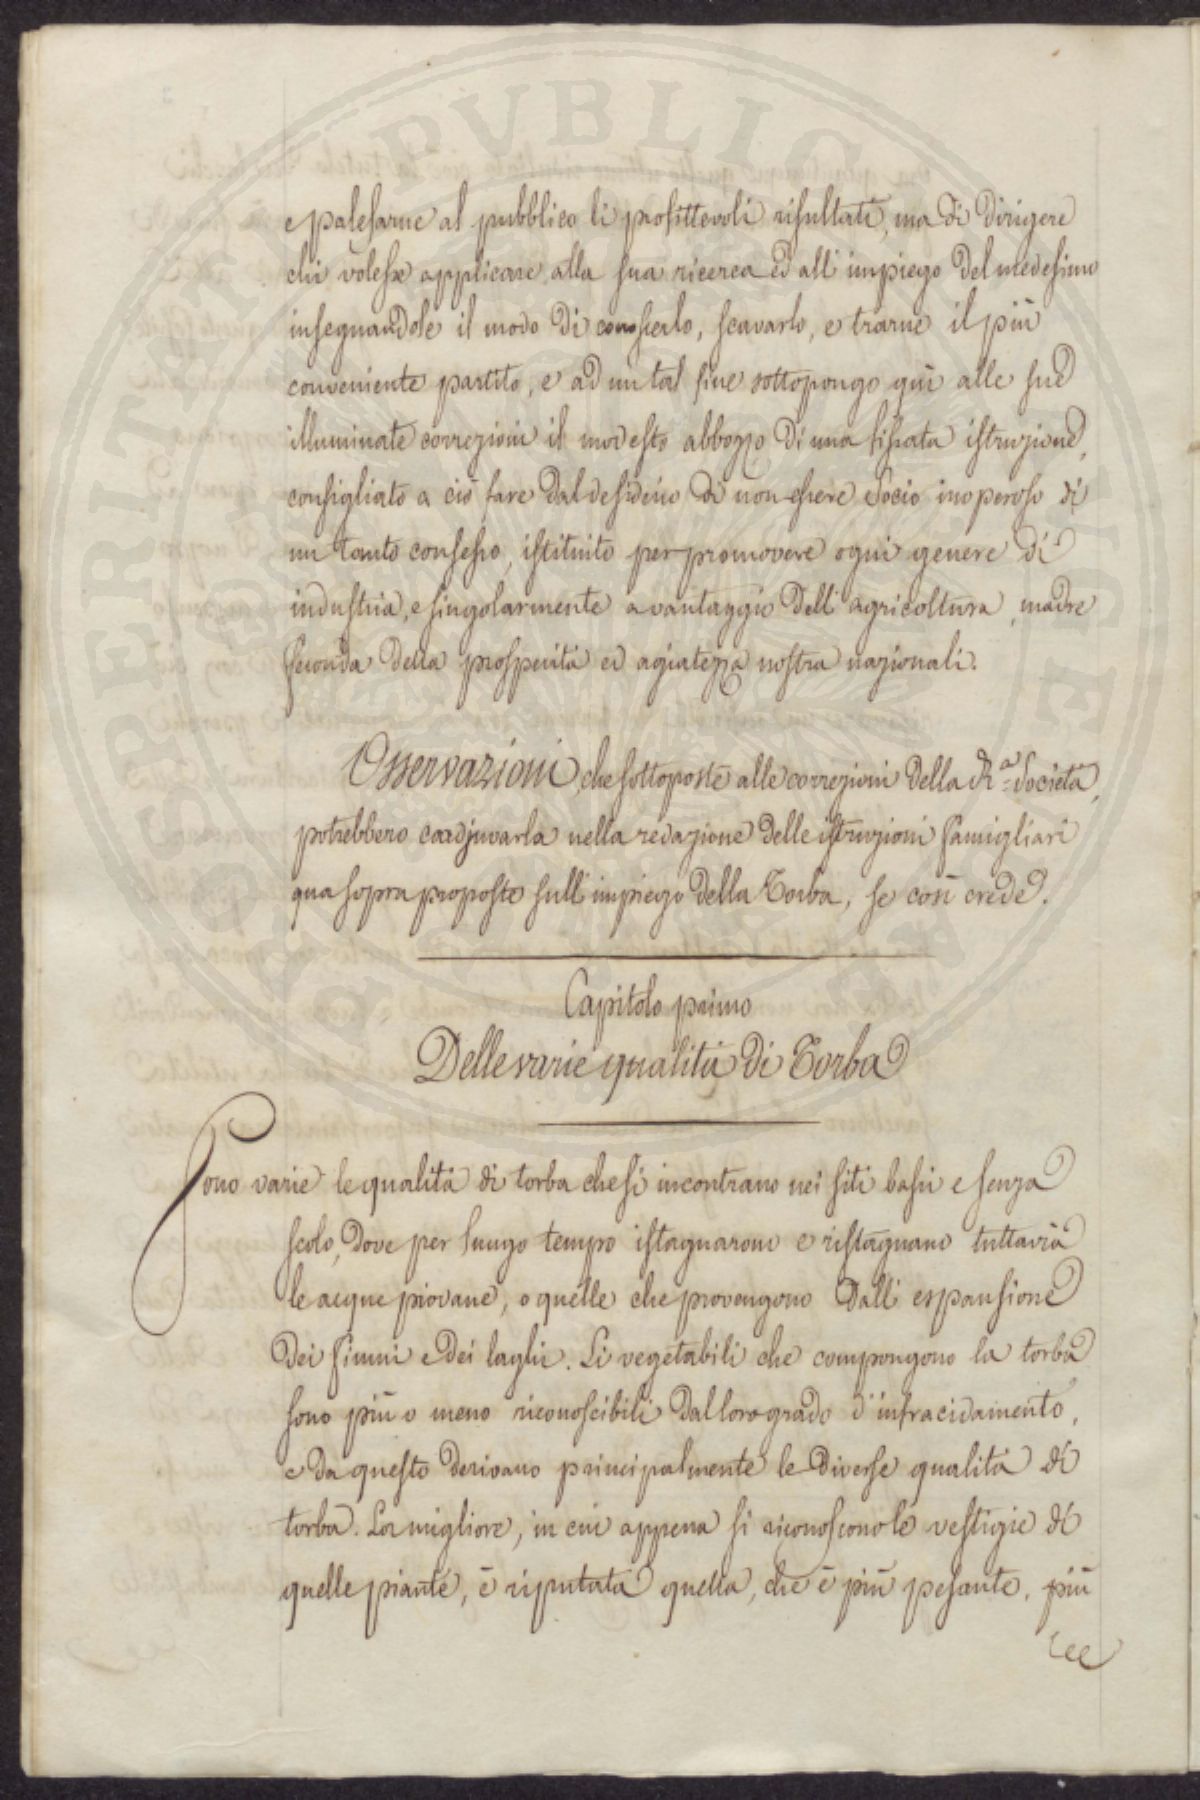 e palesarne al pubblico li profittevoli risultati, ma di dirigere
chi volesse applicare alla sua ricerca ed all'impiego del medesimo
insegnandole il modo di conoscerlo, scavarlo, e trarne il più
conveniente partito, e ad un tal fine sottopongo quì alle sue
illuminate correzioni il modesto abbozzo di una sifsata istruzione,
consigliato a ciò fare dal desiderio di non essere Socio inoperoso di
un tanto consesso, istituito per promovere ogni genere di
industria, e singolarmente a vantaggio dell'agricoltura, madre
feconda della prosperità ed agiatezza nostra nazionali.
Osservazioni, che sottoposte alle correzioni della R.a Società,
potrebbero coadjuvarla nella redazione delle istruzioni famigliari
qua sopra proposte sull'impiego della Torba, se così crede.
Capitolo primo
Delle varie qualità di Torba
Sono varie le qualità di torba che si incontrano nei siti bassi e senza
scolo, dove per lungo tempo istagnarono e ristagnano tuttavia
le acque piovane, o quelle che provengono dall'espansione
dei fiumi e dei laghi. Li vegetabili che compongono la torba
sono più o meno riconoscibili dal loro grado d'infracidamento,
e da questo derivano principalmente le diverse qualità di
torba. La migliore, in cui appena si riconoscono le vestigie di
quelle piante, è riputata quella, che è più pesante, più